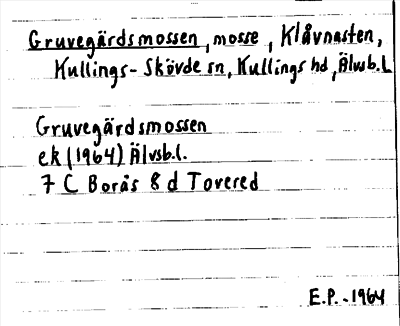 Gruvegärdsmossen, mosse, Klåvnasten,
Kullings-Skövde sn, Kullings hd, Älvsb.L
Gruvegärdsmossen
ek (1964) Älvsb.l.
7 C Borås 8 d Tovered
E.P. - 1964